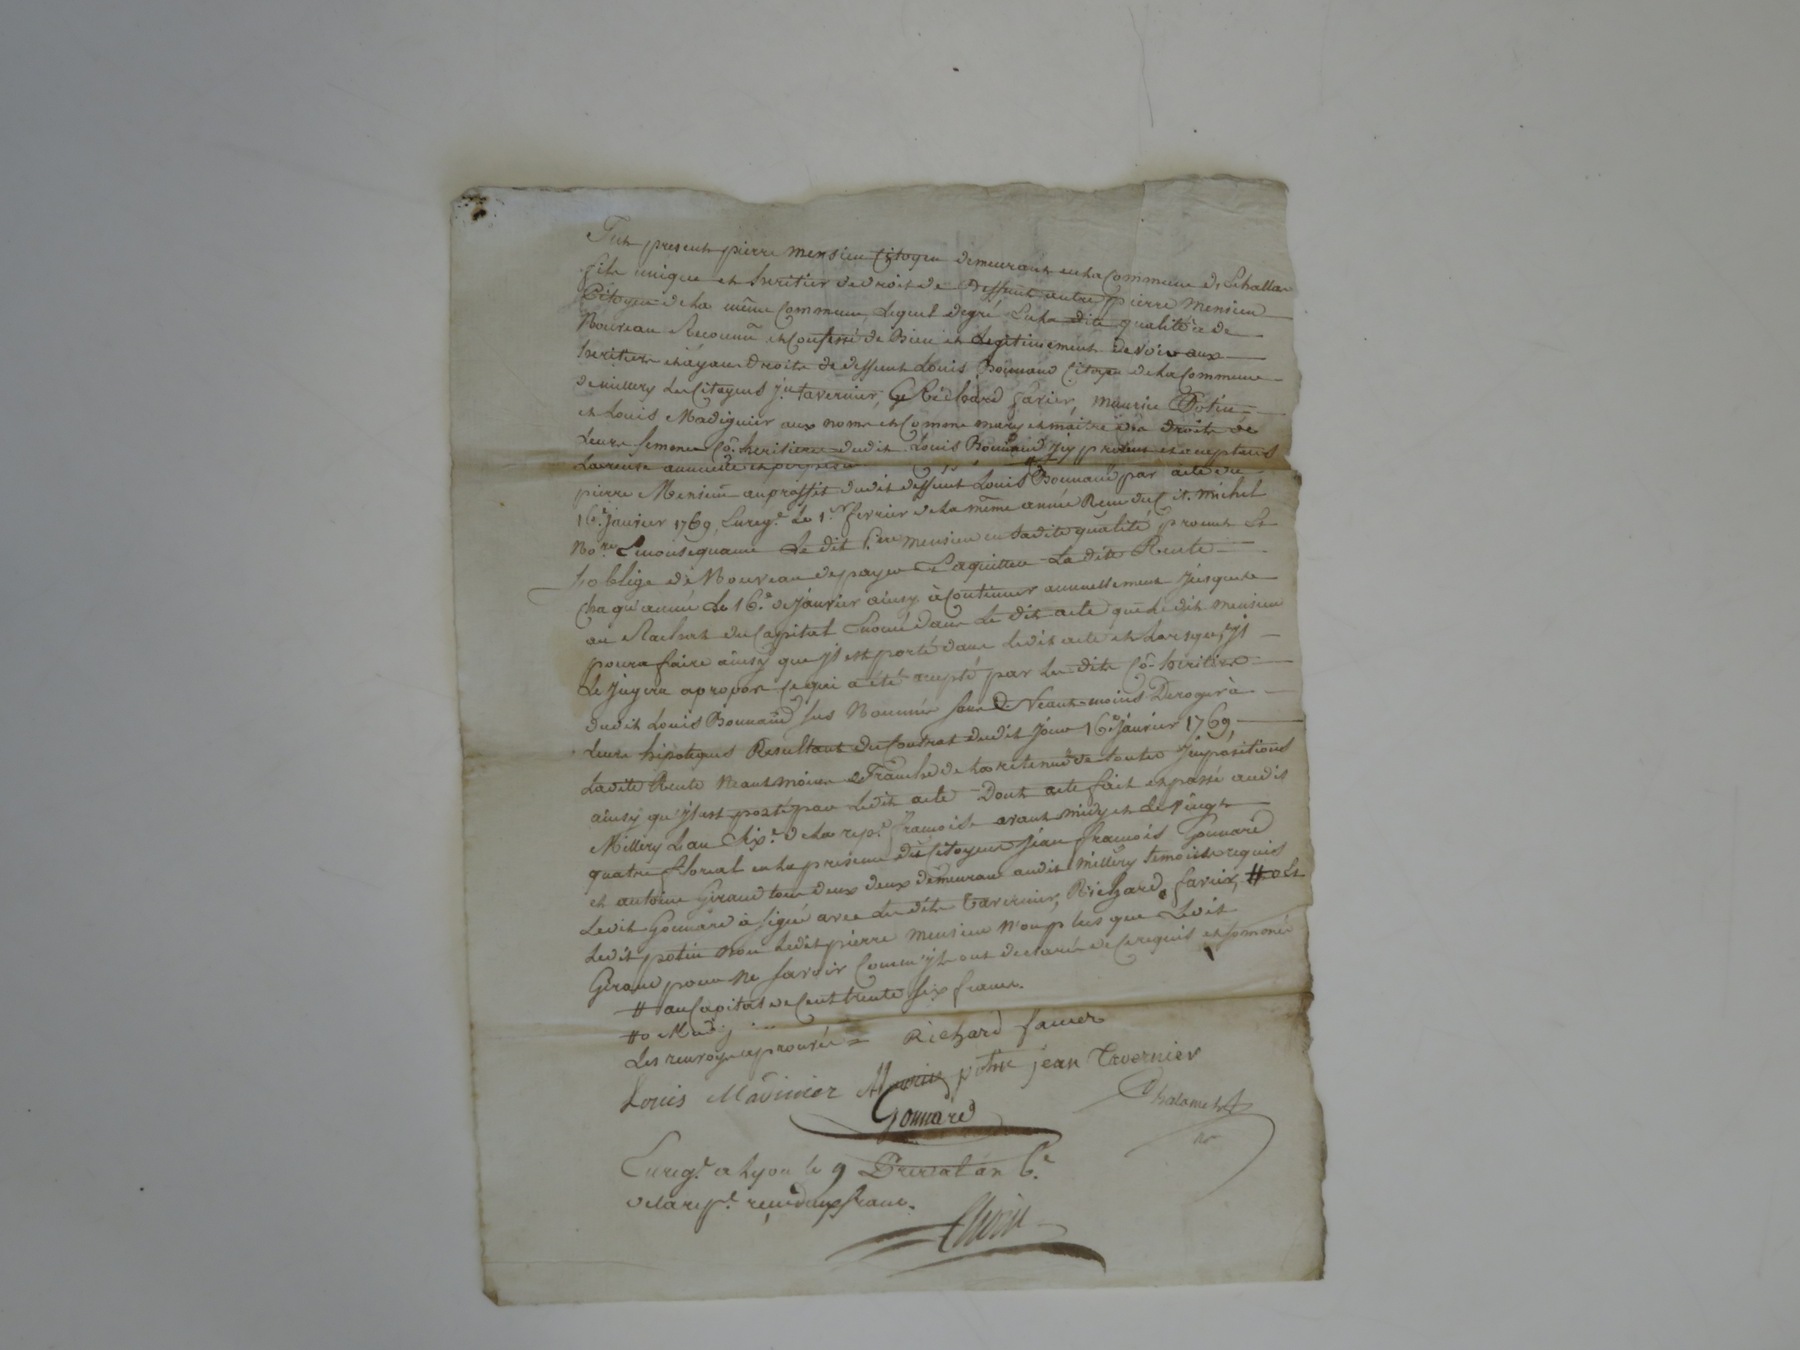 Fut present pierre mensieu Citoyen demeurant en la Commune de
fils unique et heritier de droit de deffunt autre pierre Mensieu
Citoyen de la même Commune, Lequel degré En la dite qualité à de
Nouveau Reconnu et Confessé de Bien et Legitimement devoir aux
heritiers et ayans droits de deffunt Louis Bonnand Citoyen de la Commune
de millery Les Citoyens jn. tavernier, Richard favier, maurice Potin
et Louis Madiguier aux noms et Comme marys et maitre des droits de
Leurs femmes Co-heritieres dudit Louis Bonnand jcy presens et acceptans
La rente annuelle et
pierre Mensieu au proffit dudit deffunt Louis Bonnand par acte du
16e. janvier 1769, Enregé. Le 1er. fevrier de la même année Recu du Cit. michel
Nore. Le dit pre. mensieu en sadite qualité, promet Et
soblige de Nouveau de payer et aquitter La dite Rente
chaqu'année Le 16e. de janvier ainsy à Continuer annuellement jusques
au Rachat du Capital Enoncé dans Le dit acte que Le dit mensieu
poura faire ainsy que jl est porté dans ledit acte et Lorsque jl
Le jugera apropos ce qui a été accepté par les dits Co-heritiers
dudit Louis Bonnand sus Nommés sans Neant-moins Deroger à
Leurs hipoteques Resultant du Contrat dudit jour 16e. janvier 1769,
Ladite Rente Neantmoins Franche de la retenue de toutes jmpositions
ainsy qu'jl est porté par Ledit acte Dont acte fait et passé audit
Millery L'an Sixe. de la repe. francoise avant midy et le vingt
quatre floreal en la presence des Citoyens jean francois Gonnard
et antoine Giraud tous deux deux demeurans audit millery temoins requis
Ledit Gonnard à signé avec Les dits Tavernier, Richard favier, #o Et
Ledit potin non Ledit pierre mensieu n'on plus que Ledit
Giraud pour ne savoir Comm'jls ont declaré de ce requis et sommés
# au Capital de Cent trente six francs.
#o
Les renvoys approuvés Richard favier
Louis Madinier Maurice potin jean Tavernier
Gonnard
Enregé. a Lyon le 9 Prerial an 6e.
de la repe. recu deux francs.